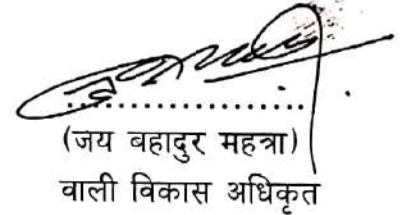 ....................
(जय बहादुर महत्रा)
वाली विकास अधिकृत